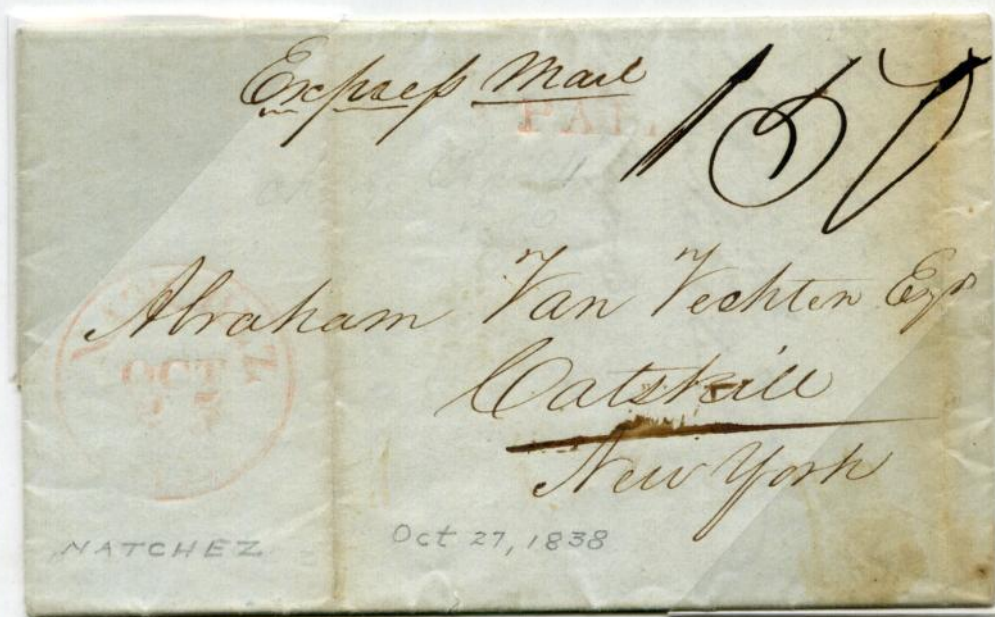 Express Mail
PAID
150
Abraham Van Vechten Esqr
Catskill
New York
NATCHEZ
OCT
NATCHEZ
Oct 27, 1838